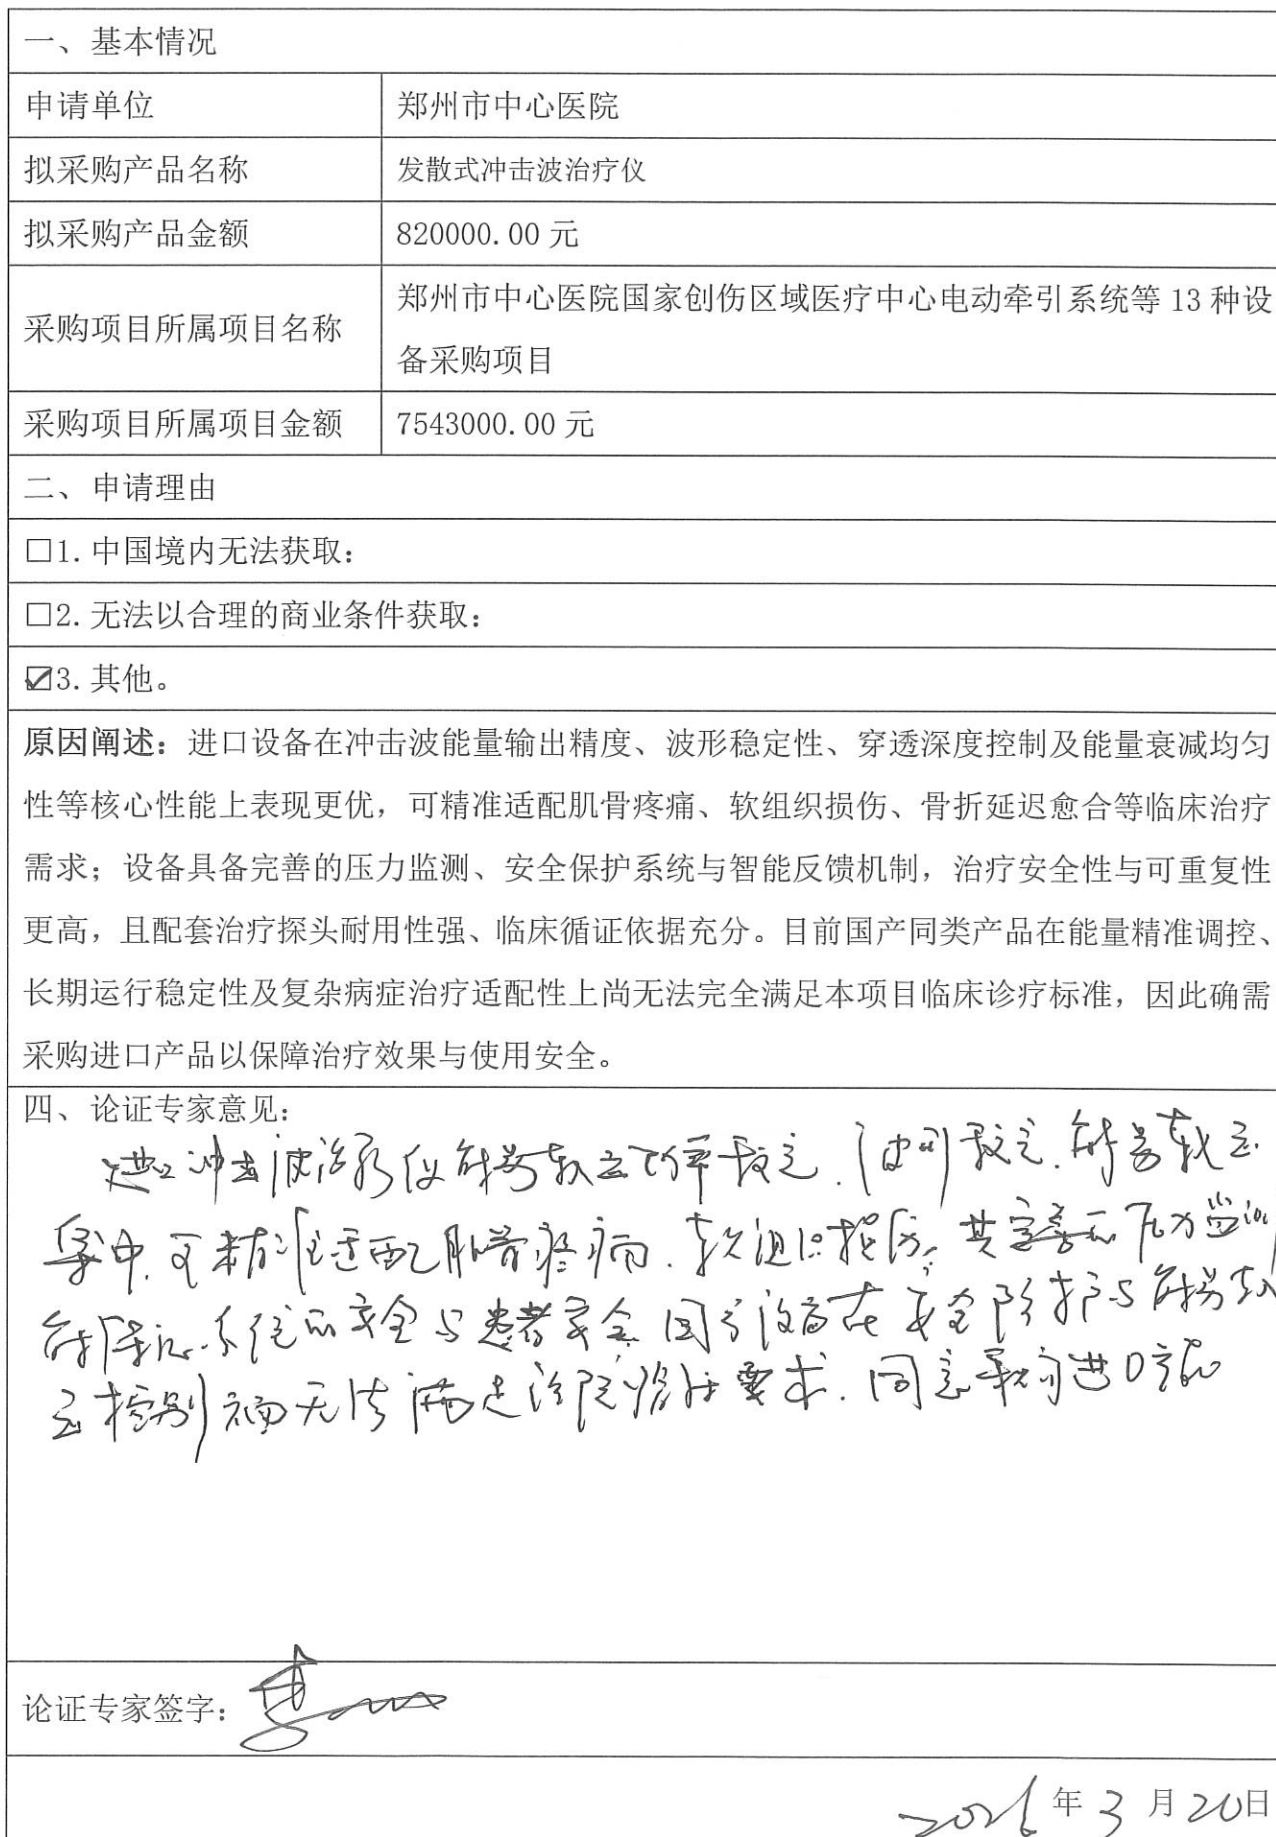 一、基本情况
申请单位 郑州市中心医院
拟采购产品名称 发散式冲击波治疗仪
拟采购产品金额 820000.00 元
采购项目所属项目名称 郑州市中心医院国家创伤区域医疗中心电动牵引系统等 13 种设
备采购项目
采购项目所属项目金额 7543000.00 元
二、申请理由
□1. 中国境内无法获取：
□2. 无法以合理的商业条件获取：
☑3. 其他。
原因阐述：进口设备在冲击波能量输出精度、波形稳定性、穿透深度控制及能量衰减均匀
性等核心性能上表现更优，可精准适配肌骨疼痛、软组织损伤、骨折延迟愈合等临床治疗
需求；设备具备完善的压力监测、安全保护系统与智能反馈机制，治疗安全性与可重复性
更高，且配套治疗探头耐用性强、临床循证依据充分。目前国产同类产品在能量精准调控、
长期运行稳定性及复杂病症治疗适配性上尚无法完全满足本项目临床诊疗标准，因此确需
采购进口产品以保障治疗效果与使用安全。
四、论证专家意见：
进口冲击波治疗仪能量
集中.可精准适配肌骨疼痛.软组织损伤.其完善的压力监测
安全与患者安全.国产设备在安全防护与能量
无法满足医院临床要求.同意采购进口产品
论证专家签字：
2026 年 3 月 20 日